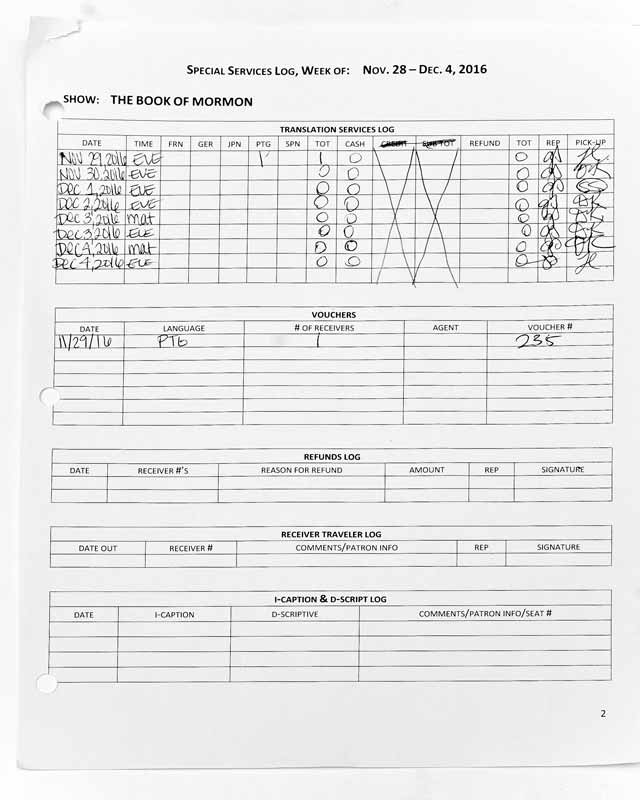 SPECIAL SERVICES LOG, WEEK OF: NOV. 28 – DEC. 4, 2016
SHOW: THE BOOK OF MORMON
TRANSLATION SERVICES LOG
DATE TIME FRN GER JPN PTG SPN TOT CASH CREDIT SUB TOT REFUND TOT REP PICK-UP
NOV 29, 2016 EVE 1 1 0 0
NOV 30, 2016 EVE 0 0 0
DEC 1, 2016 EVE 0 0 0
DEC 2, 2016 EVE 0 0 0
DEC 3, 2016 mat 0 0 0
DEC 3, 2016 EVE 0 0 0
DEC 4, 2016 mat 0 0 0
DEC 4, 2016 EVE 0 0 0
VOUCHERS
DATE LANGUAGE # OF RECEIVERS AGENT VOUCHER #
11/29/16 PTG 1 235
REFUNDS LOG
DATE RECEIVER #'S REASON FOR REFUND AMOUNT REP SIGNATURE
RECEIVER TRAVELER LOG
DATE OUT RECEIVER # COMMENTS/PATRON INFO REP SIGNATURE
I-CAPTION & D-SCRIPT LOG
DATE I-CAPTION D-SCRIPTIVE COMMENTS/PATRON INFO/SEAT #
2